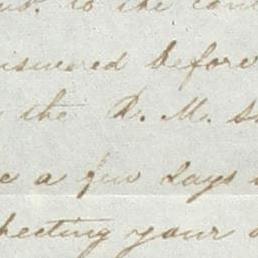 to the con
nswered before
the P. M. s
e a few days
pecting your a